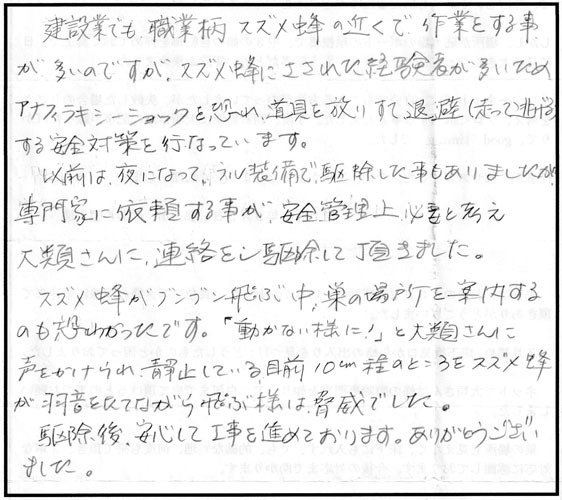 建設業でも、職業柄スズメ蜂の近くで作業をする事
が多いのですが、スズメ蜂にさされた経験者が多いため
アナフィラキシーショックを恐れ、道具を放りすて、退避(走って逃げる)
する安全対策を行なっています。
以前は、夜になって、フル装備で、駆除した事もありましたが、
専門家に依頼する事が、安全管理上、必要と考え
大類さんに、連絡をし駆除して頂きました。
スズメ蜂がブンブン飛ぶ中、巣の場所を案内する
のも恐わかったです。「動かない様に!」と大類さんに
声をかけられ、静止している目前10cm程のところをスズメ蜂
が羽音をたてながら飛ぶ様は、脅威でした。
駆除後、安心して工事を進めております。ありがとうござい
ました。